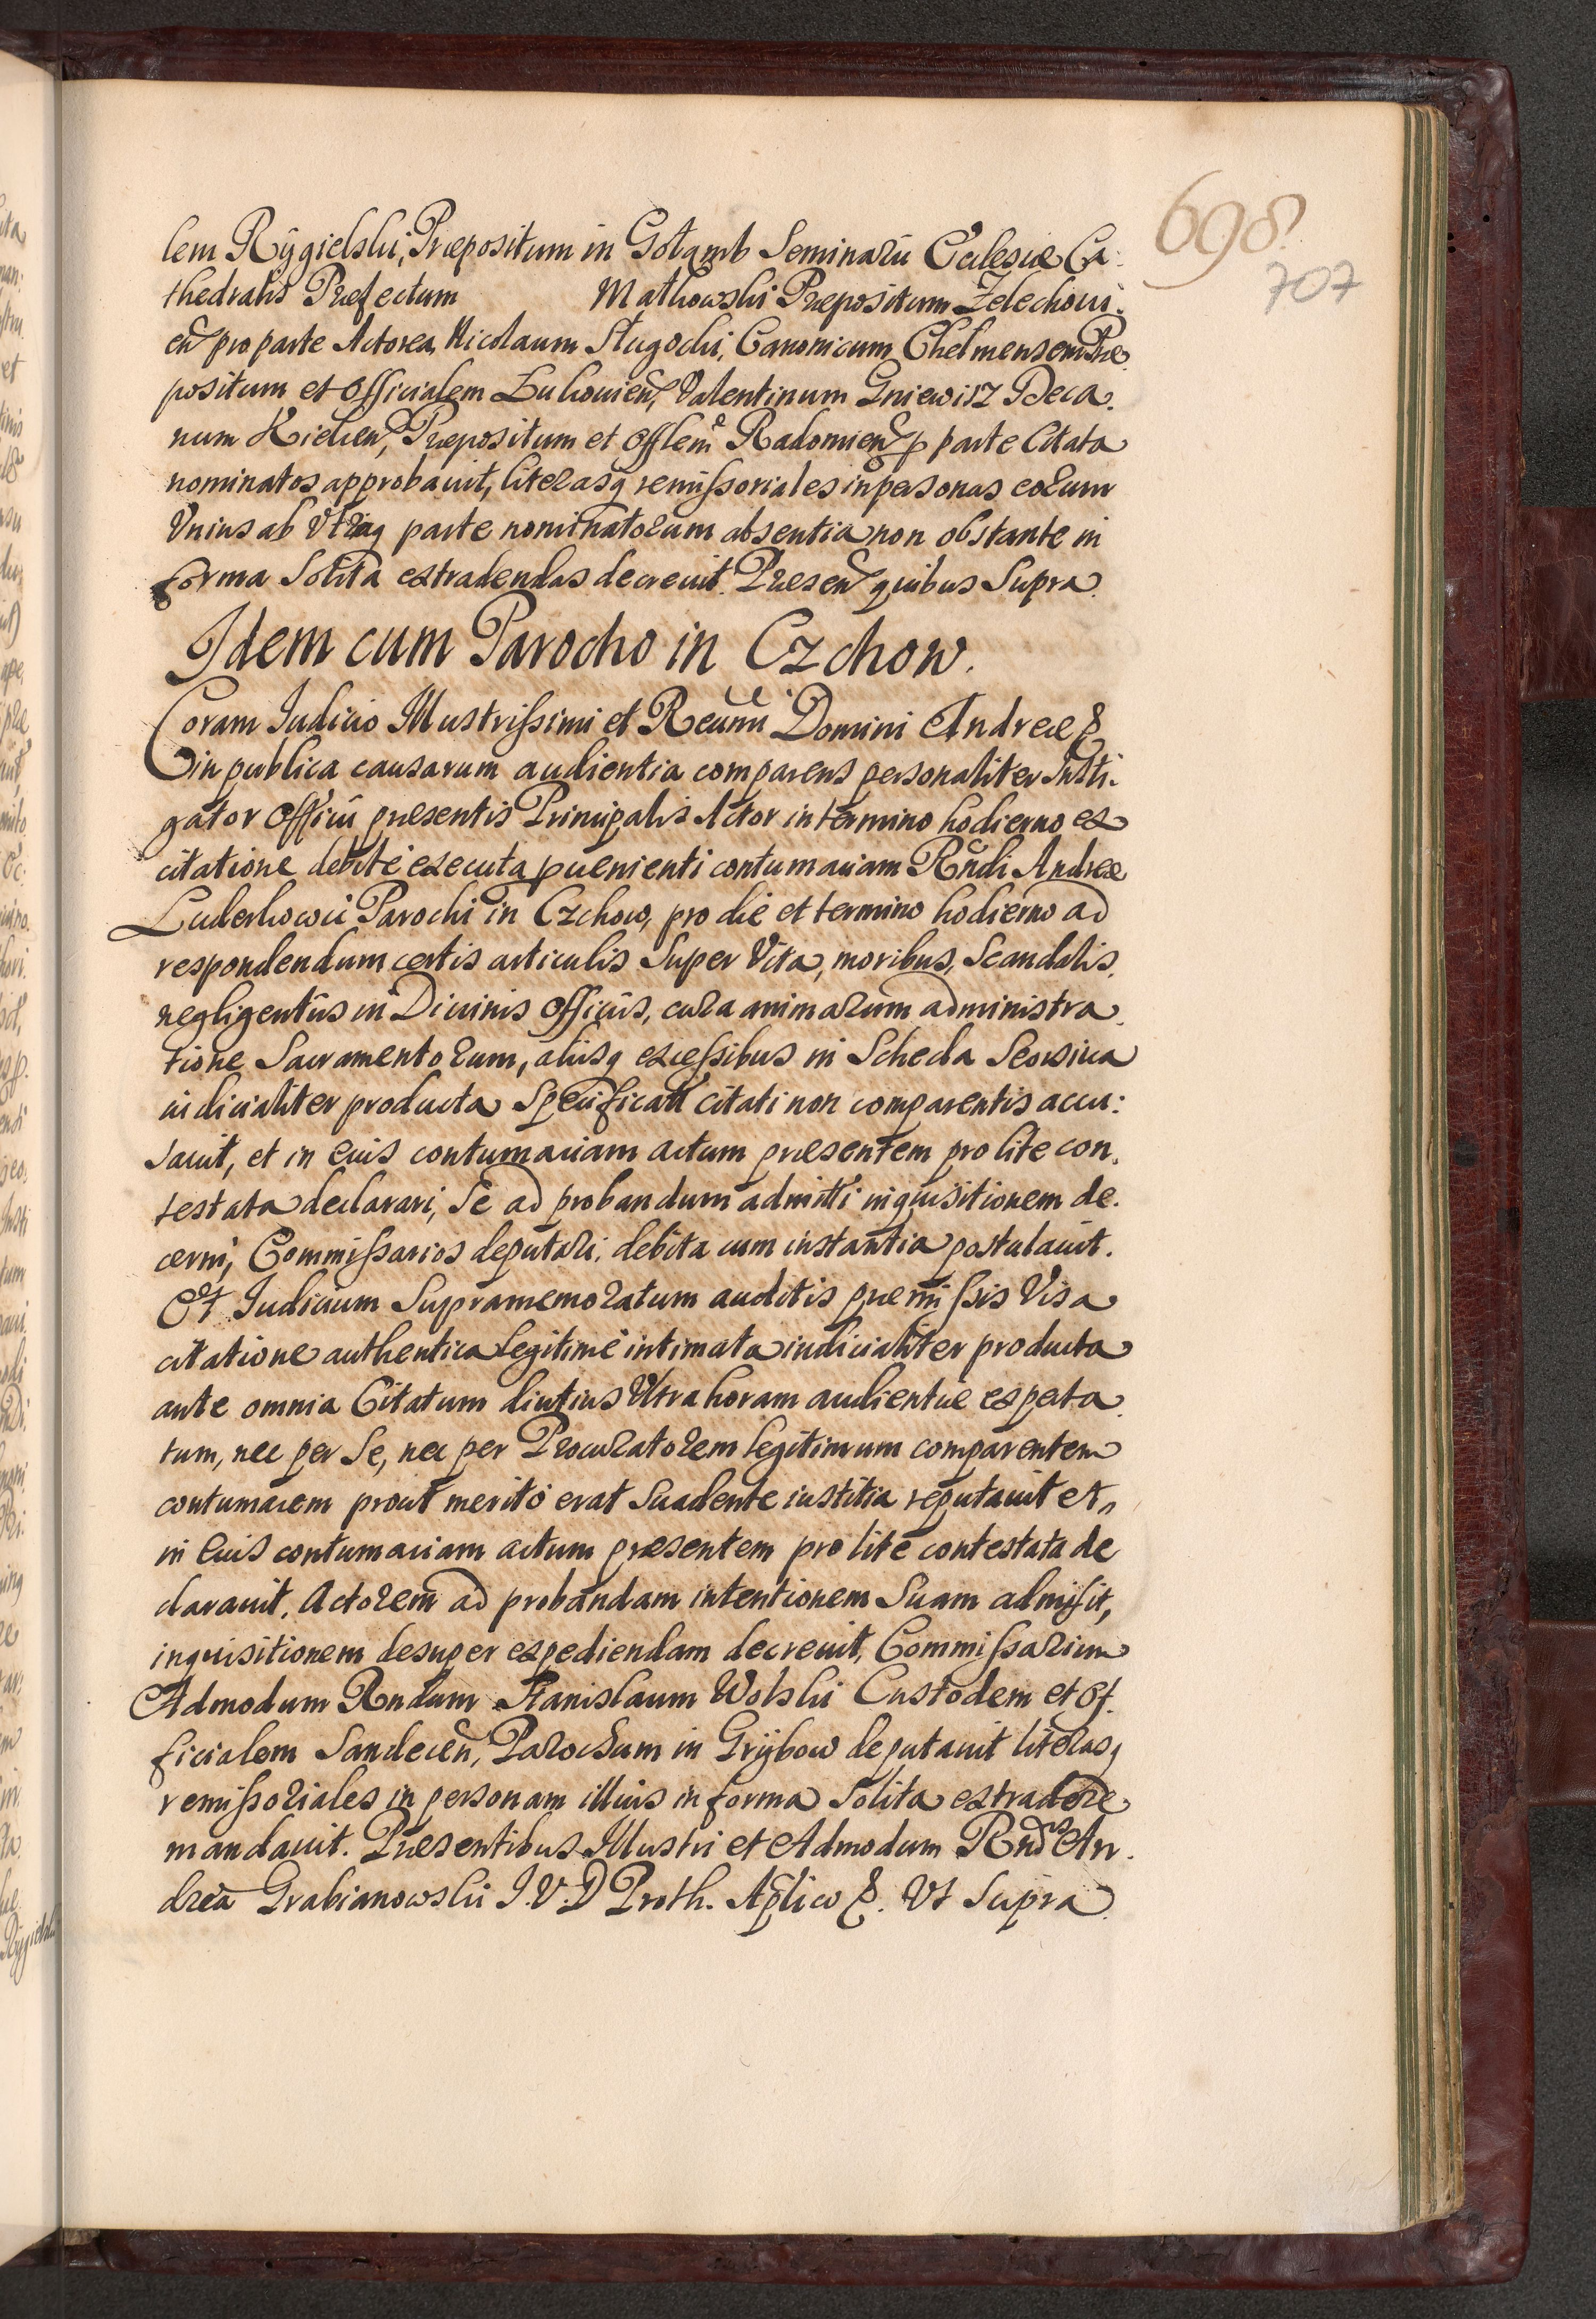 698
707
lem Rÿgielski, Præpositum in Gołąmb Seminarii Ecclesiæ Ca-
thedralis Præfectum Matkowski Præpositum Zelechoui-
eñ pro parte Actorea, Nicolaum Sługocki, Canonicum Chelmensem Præ-
positum et Officialem Lukouieñ, Valentinum Gniewisz Deca-
num Kielceñ, Præpositum et Offlem Radomieñ p parte Citata
nominatos approbauit, literasq remissoriales in personas eorum
Vnius ab Vtraq parte nominatorum absentia non obstante in
forma Solita extradendas decreuit. Præseñ quibus Supra.
Idem cum Parocho in Czchow.
Coram Iudicio Illustrissimi et Reuñi Domini Andreæ &
in publica causarum audientia comparens personaliter Insti-
gator Officii præsentis Principalis Actor in termino hodierno ex
citatione debite executa puenienti contumaciam Rñdi Andreæ
Luderkowic Parochi in Czchow, pro die et termino hodierno ad
respondendum certis articulis Super Vita, moribus, Scandalis,
negligentiis in Diuinis Officiis, cura animarum administra-
tione Sacramentorum, aliisq excessibus in Scheda Seorsiua
iudicialiter producta Specificatt citati non comparentis accu:
sauit, et in eius contumaciam actum præsentem pro lite con-
testata declarari, Se ad probandum admitti inquisitionem de-
cerni, Commissarios deputari, debita cum instantia postulauit.
Et Iudicium Supramemoratum auditis præmissis Visa
citatione authentica legitime intimata iudicialiter producta
ante omnia Citatum diutius Vltra horam audientiæ expecta-
tum, nec per Se, nec per Procuratorem legitimum comparentem
contumacem prout merito erat Suadente iustitia reputauit et
in Eius contumaciam actum præsentem pro lite contestata de
clarauit. Actorem ad probandam intentionem Suam admisit,
inquisitionem desuper expediendam decreuit, Commissarium
Admodum Rndum Stanislaum Wolski Custodem et Of-
ficialem Sandeceñ, Parochum in Grÿbow deputauit literasq
remissoriales in personam illius in forma Solita extradere
mandauit. Præsentibus Illustri et Admodum Rnd An-
drea Grabianowski I. V. D Proth. Aplico &. Vt Supra